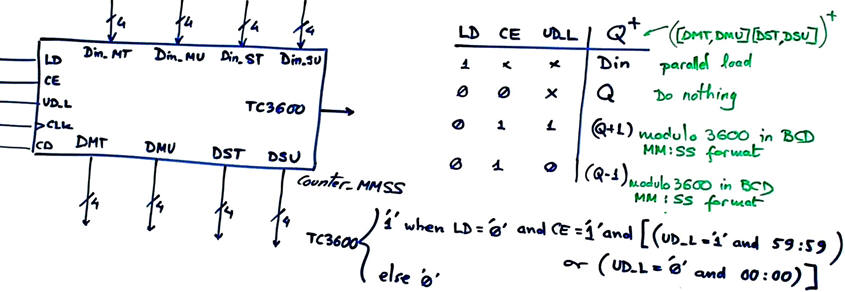 4 4 4 4
LD Din_MT Din_MU Din_ST Din_SU
CE
UD_L TC3600
CLK
CD DMT DMU DST DSU
4 4 4 4
Counter_MMSS
LD CE UD_L Q⁺ ([DMT,DMU][DST,DSU])⁺
1 x x Din parallel load
0 0 x Q Do nothing
0 1 1 (Q+1) modulo 3600 in BCD
MM:SS format
0 1 0 (Q-1) modulo 3600 in BCD
MM:SS format
TC3600 { '1' when LD='0' and CE='1' and [(UD_L='1' and 59:59)
or (UD_L='0' and 00:00)]
else '0'